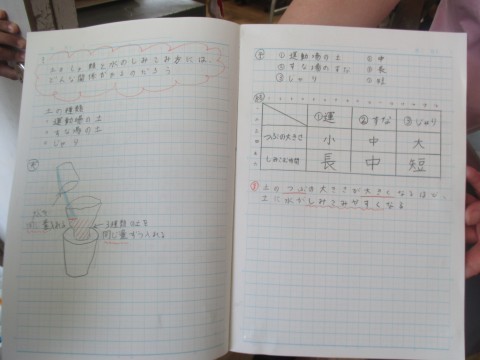 土のつぶと水のしみこみ方には、
どんな関係があるのだろう
土の種類
・運動場の土
・すな場の土
・じゃり
3種類の土を
同じ量ずつ入れる
予
①運動場の土 ③中
②すな場のすな ②長
③じゃり ①短
結
①運 ②すな ③じゃり
つぶの大きさ 小 中 大
しみこむ時間 長 中 短
土のつぶの大きさが大きくなるほど、
土に水がしみこみやすくなる